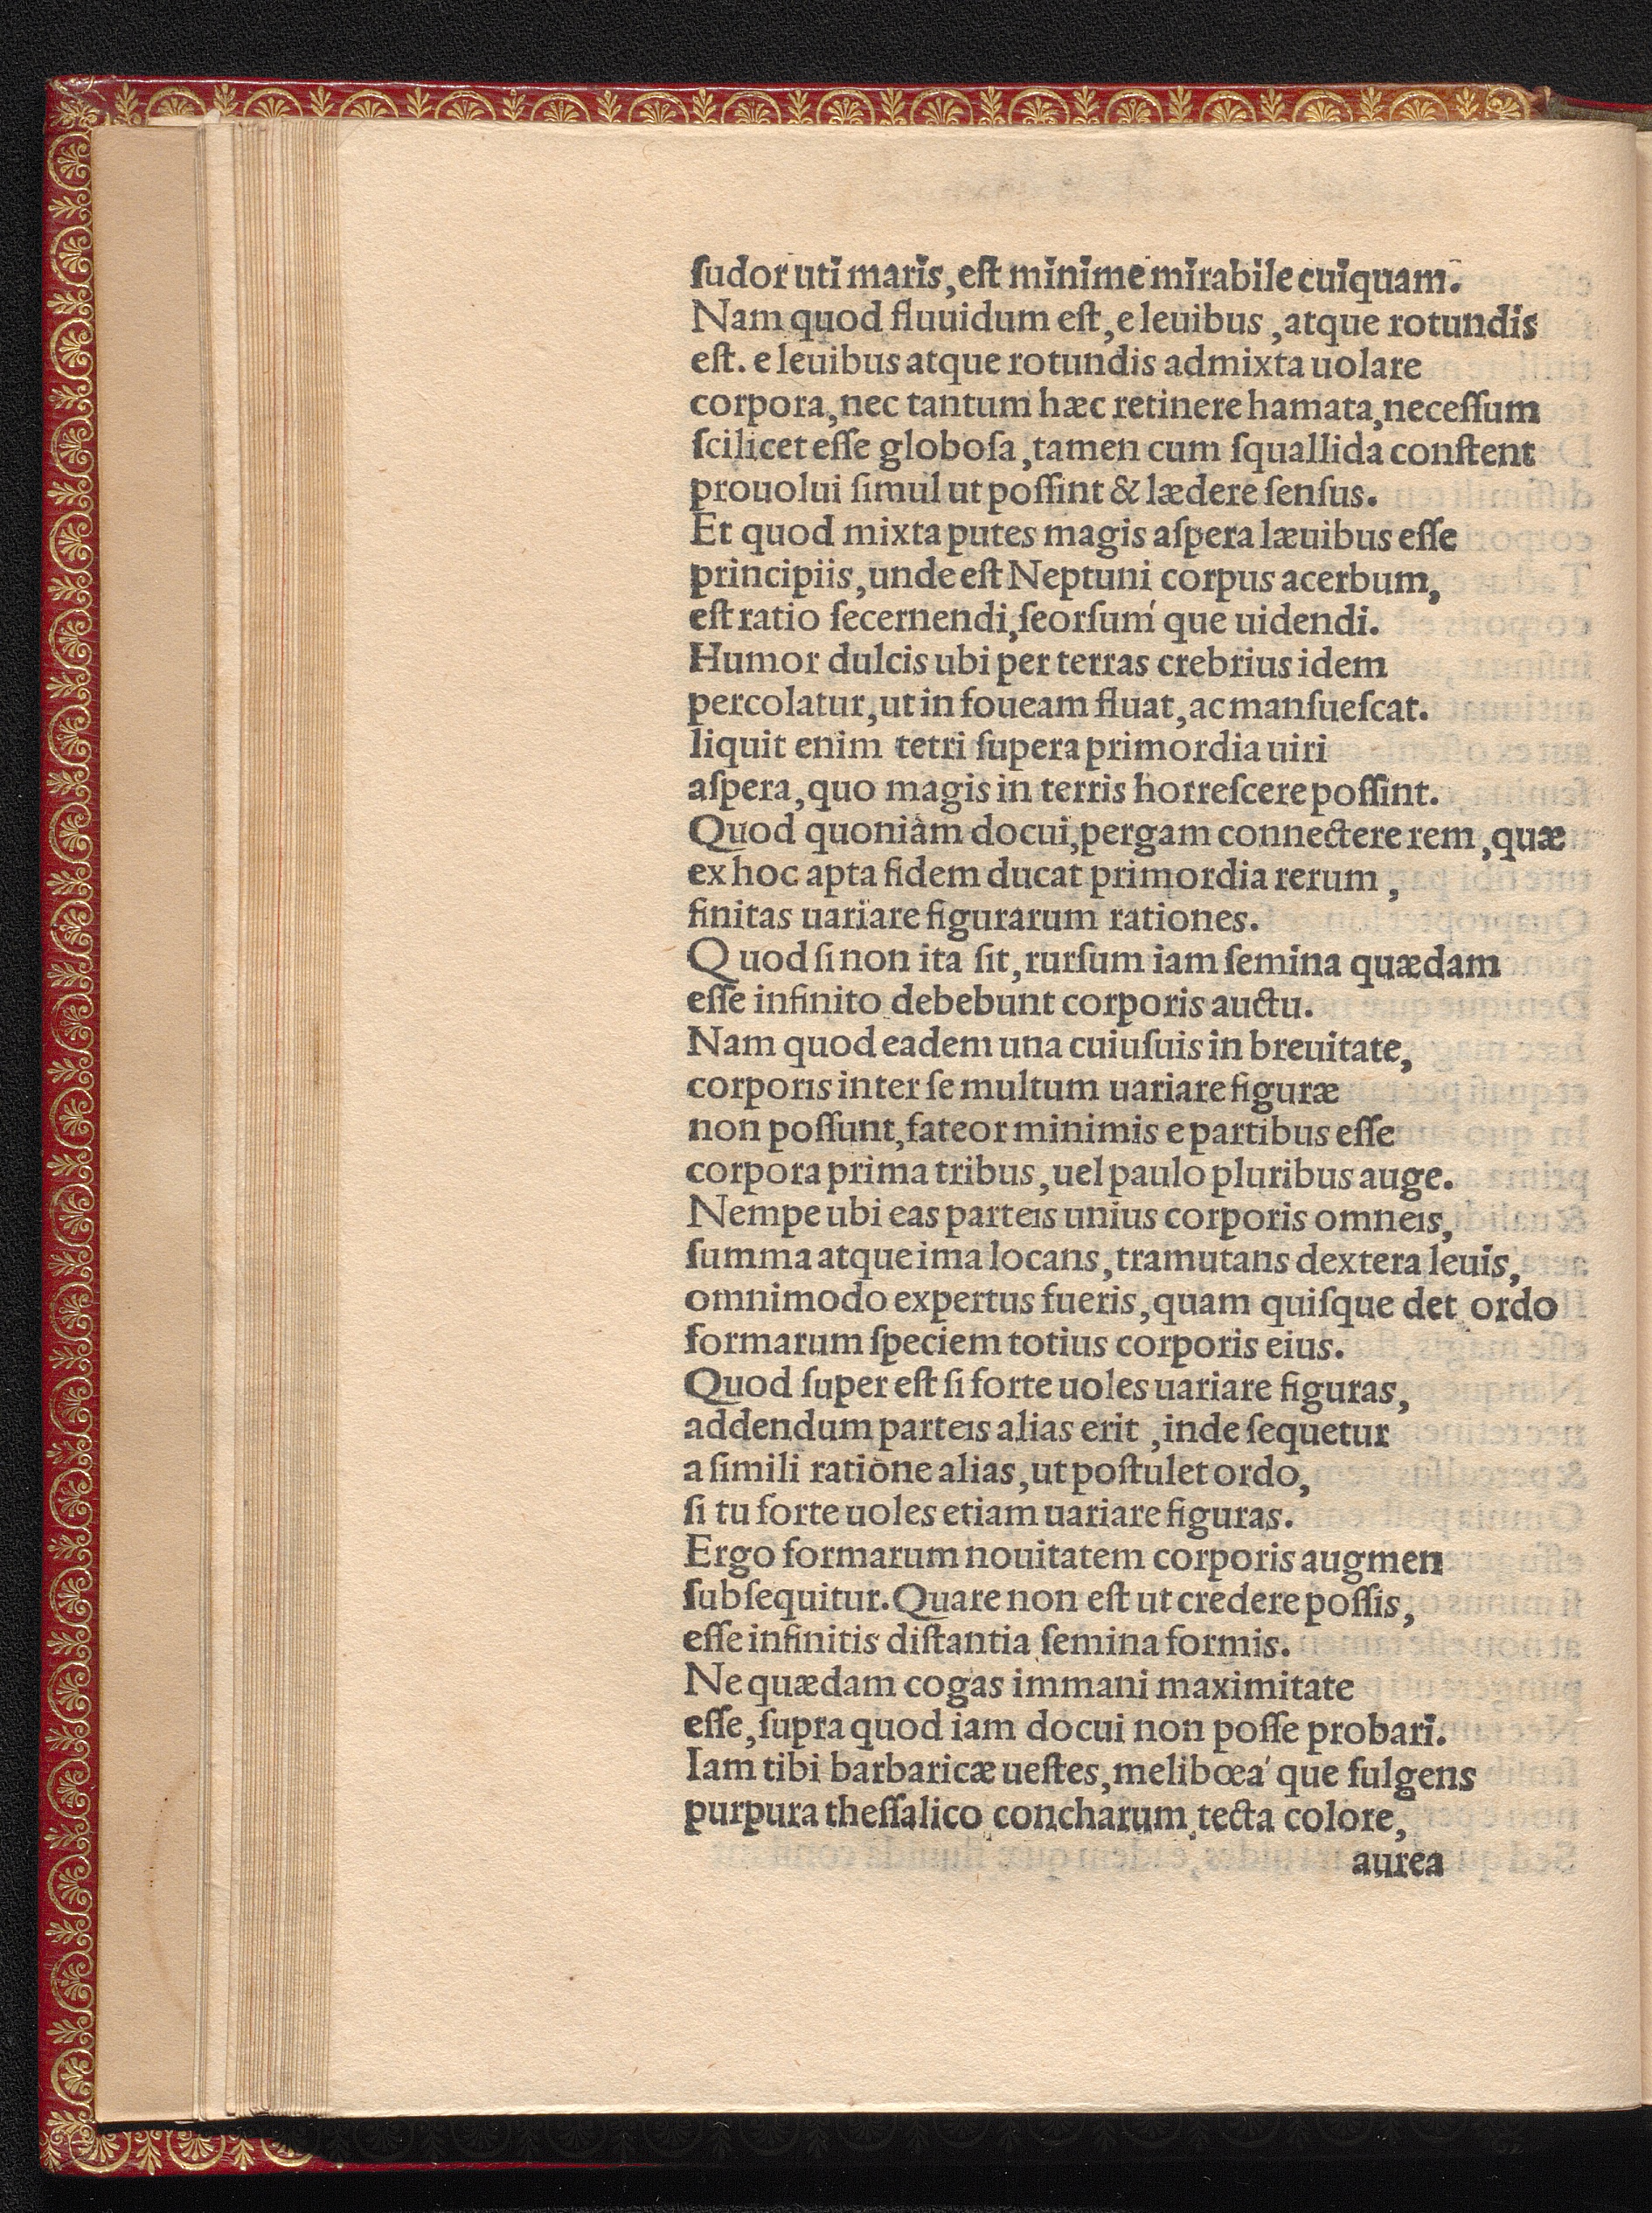 ſudor uti maris, eſt minime mirabile cuiquam.
Nam quod fluuidum eſt, e leuibus, atque rotundis
eſt. e leuibus atque rotundis admixta uolare
corpora, nec tantum hæc retinere hamata, neceſſum
ſcilicet eſſe globoſa, tamen cum ſquallida conſtent
prouolui ſimul ut poſſint & lædere ſenſus.
Et quod mixta putes magis aſpera læuibus eſſe
principiis, unde eſt Neptuni corpus acerbum,
eſt ratio ſecernendi, ſeorſum´ que uidendi.
Humor dulcis ubi per terras crebrius idem
percolatur, ut in foueam fluat, ac manſueſcat.
liquit enim tetri ſupera primordia uiri
aſpera, quo magis in terris horreſcere poſſint.
Quod quoniàm docui, pergam connectere rem, quæ
ex hoc apta fidem ducat primordia rerum,
finitas uariare figurarum rationes.
Quod ſi non ita ſit, rurſum iam ſemina quædam
eſſe infinito debebunt corporis auctu.
Nam quod eadem una cuiuſuis in breuitate,
corporis inter ſe multum uariare figuræ
non poſſunt, fateor minimis e partibus eſſe
corpora prima tribus, uel paulo pluribus auge.
Nempe ubi eas parteis unius corporis omneis,
ſumma atque ima locans, tramutans dextera leuis,
omnimodo expertus fueris, quam quiſque det ordo
formarum ſpeciem totius corporis eius.
Quod ſuper eſt ſi forte uoles uariare figuras,
addendum parteis alias erit, inde ſequetur
a ſimili ratione alias, ut poſtulet ordo,
ſi tu forte uoles etiam uariare figuras.
Ergo formarum nouitatem corporis augmen
ſubſequitur. Quare non eſt ut credere poſſis,
eſſe infinitis diſtantia ſemina formis.
Ne quædam cogas immani maximitate
eſſe, ſupra quod iam docui non poſſe probari.
Iam tibi barbaricæ ueſtes, melibœa´ que fulgens
purpura theſſalico concharum tecta colore,
aurea